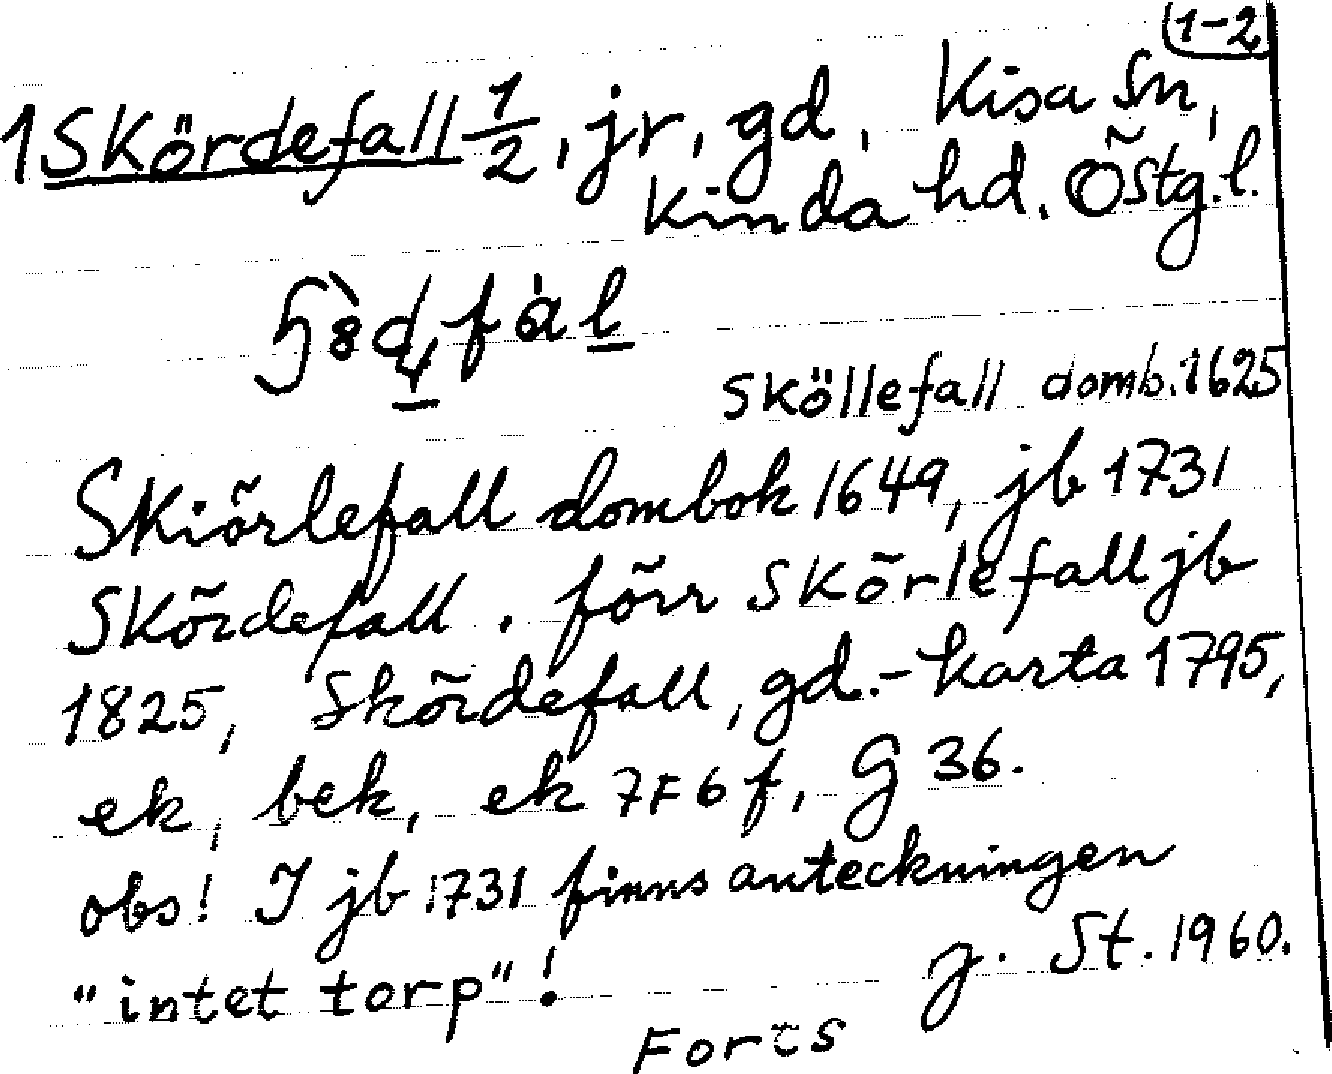 1-2
1 Skördefall 1/2, jr, gd, Kisa Sn,
Kinda hd. Östg.l.
Sköllefall domb. 1625
Skiörlefall dombok 1649, jb 1731
Skördefall. förr Skörlefall jb
1825, Skördefall, gd.-karta 1795,
ek, bek, ek 7F6f, G 36.
obs! I jb 1731 finns anteckningen
"intet torp"!
J. St. 1960.
Forts